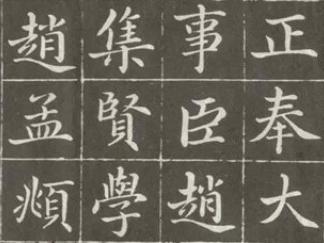 正奉大
事臣趙
集賢學
趙孟頫